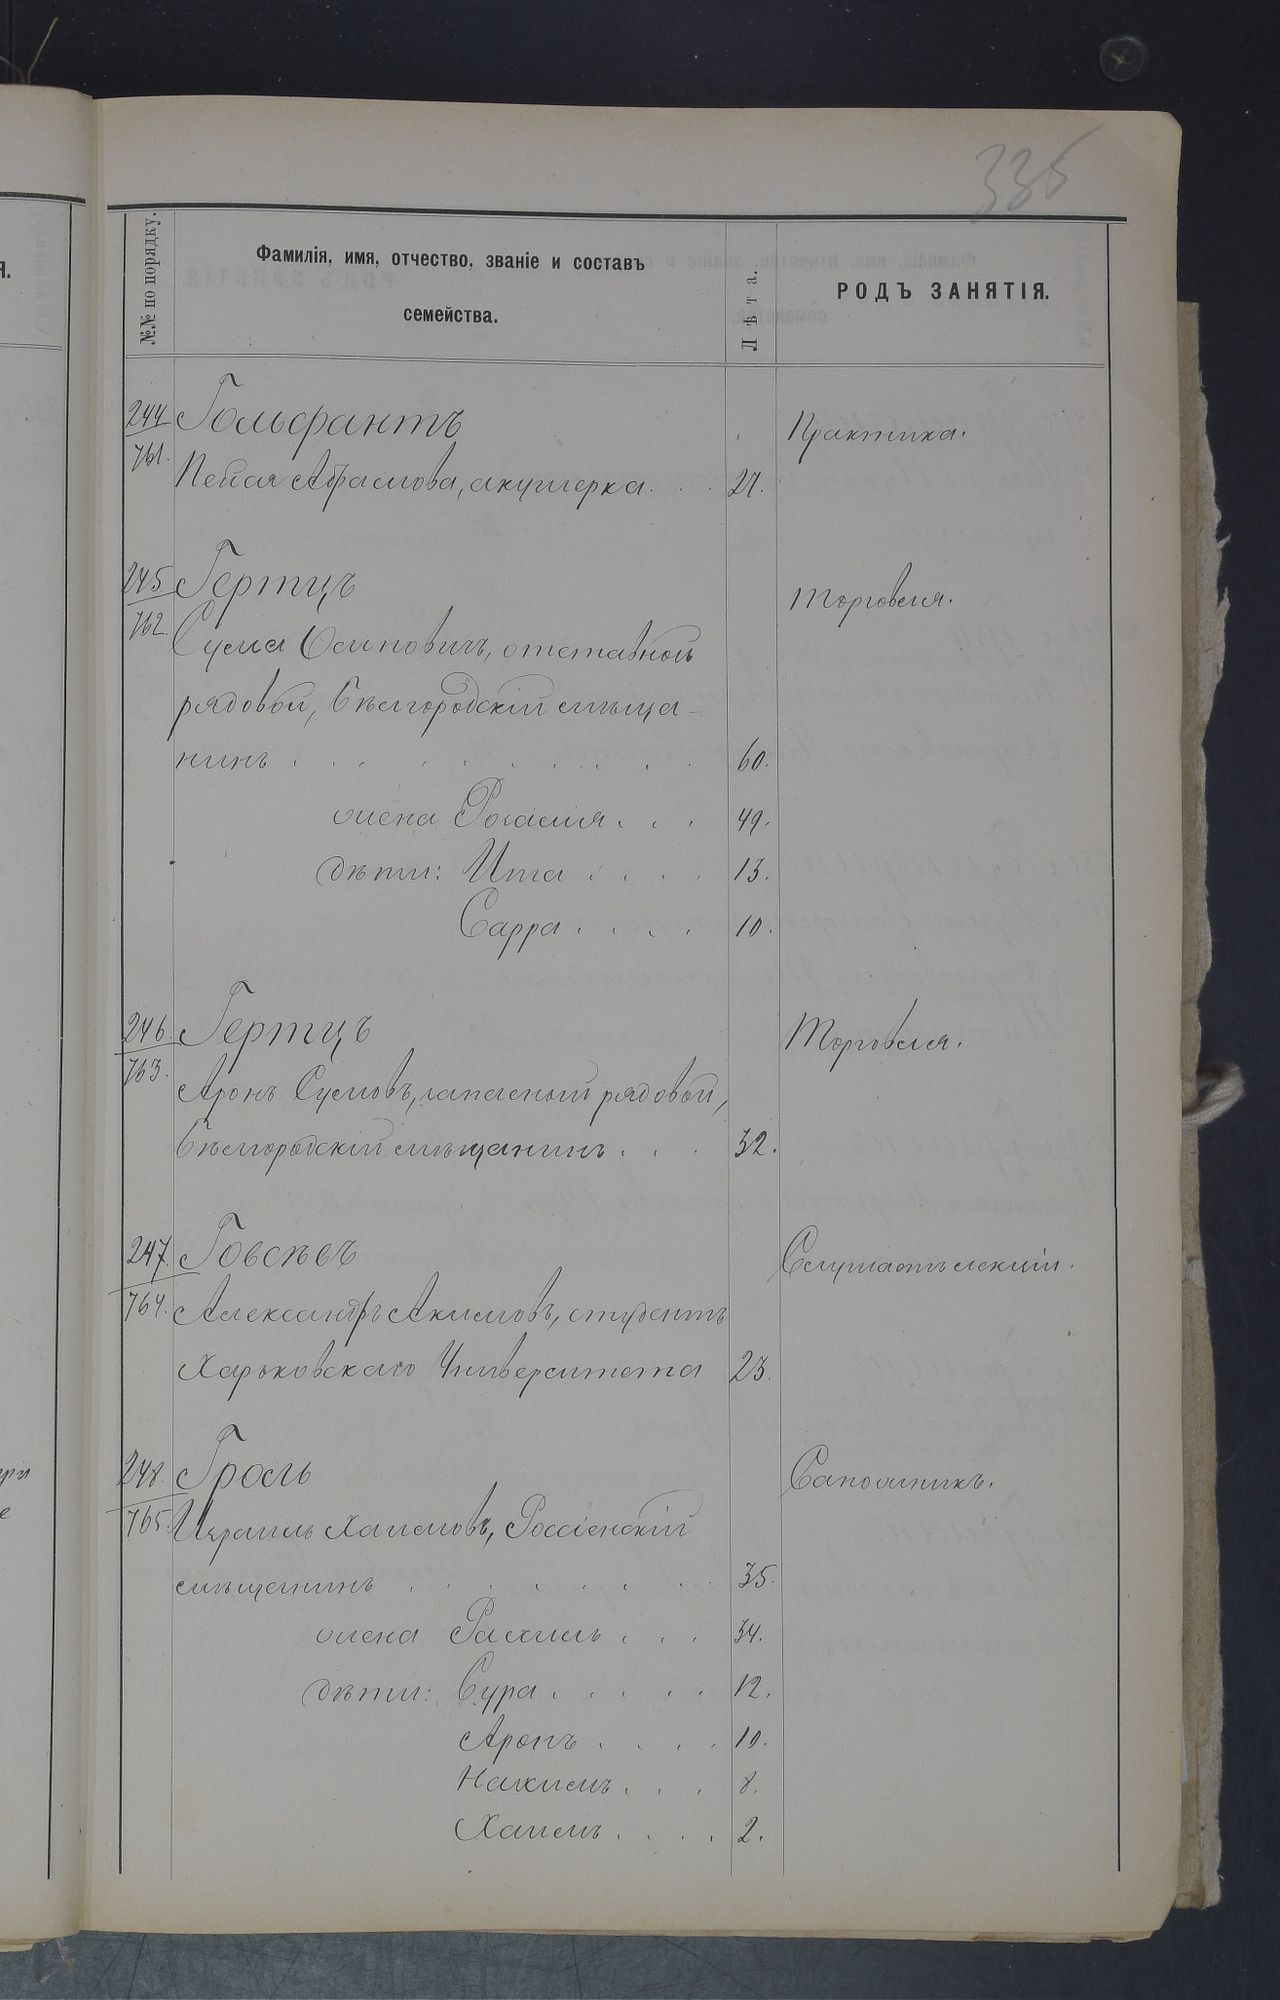 335
№№ по порядку.
Фамилія, имя, отчество, званіе и составъ
семейства.
Лѣта.
РОДЪ ЗАНЯТІЯ.
Я.
244
761.
Гольфантъ
Практика.
Абрамова, акушерка. . . 27.
245
762.
Гертцъ
Торговля.
Сума Осиповичъ, отставной
рядовой, Бѣлгородскій мѣща-
нинъ . . . . . . . . . 60.
жена Рогамя . . . 49.
дѣти: Ита . . . . 13.
Сарра . . . . 10.
246.
763.
Гертцъ
Торговля.
Аронъ Сумовъ, запасной рядовой,
Бѣлгородскій мѣщанинъ . . . 32.
247.
764.
Говсѣевъ
Слушатъ лекціи.
Александръ Акимовъ, студентъ
Харьковскаго Университета 23.
248.
765.
Гроль
Сапожникъ.
Израиль Хаимовъ, Россіенскій
мѣщанинъ . . . . . . . 35.
жена Рахиль . . . 34.
дѣти: Сура . . . . . 12.
Аронъ . . . . 10.
Нахимъ . . . 8.
Хаимъ . . . . 2.